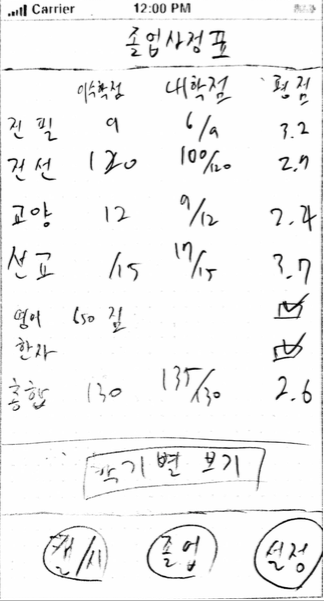 Carrier 12:00 PM
졸업사정표
이수학점 내학점 평점
전필 9 6/9 3.2
전선 120 100/120 2.7
교양 12 9/12 2.4
선교 /15 17/15 3.7
영어 650점
한자
종합 130 135/130 2.6
학기별 보기
캘/시 졸업 설정